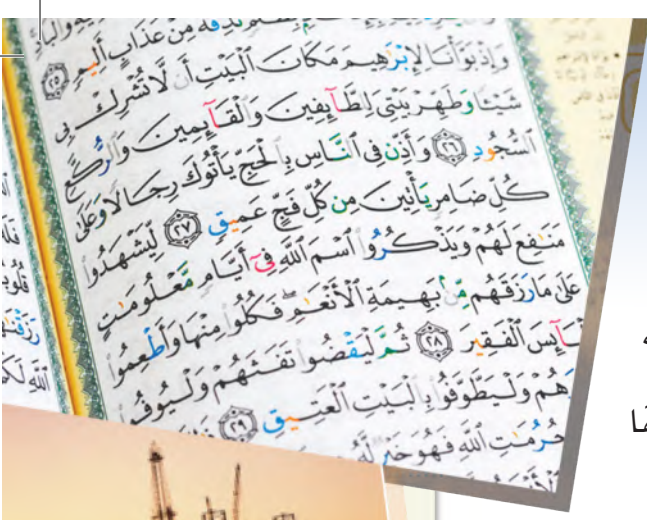 نُذِقْهُ مِنْ عَذَابٍ أَلِيمٍ ٢٥
وَإِذْ بَوَّأْنَا لِإِبْرَٰهِيمَ مَكَانَ ٱلْبَيْتِ أَن لَّا تُشْرِكْ بِى
شَيْـًٔا وَطَهِّرْ بَيْتِىَ لِلطَّآئِفِينَ وَٱلْقَآئِمِينَ وَٱلرُّكَّعِ
ٱلسُّجُودِ ٢٦ وَأَذِّن فِى ٱلنَّاسِ بِٱلْحَجِّ يَأْتُوكَ رِجَالًا وَعَلَىٰ
كُلِّ ضَامِرٍ يَأْتِينَ مِن كُلِّ فَجٍّ عَمِيقٍ ٢٧ لِّيَشْهَدُوا۟
مَنَٰفِعَ لَهُمْ وَيَذْكُرُوا۟ ٱسْمَ ٱللَّهِ فِىٓ أَيَّامٍ مَّعْلُومَٰتٍ
عَلَىٰ مَا رَزَقَهُم مِّنۢ بَهِيمَةِ ٱلْأَنْعَٰمِ ۖ فَكُلُوا۟ مِنْهَا وَأَطْعِمُوا۟
ٱلْفَقِيرَ ٢٨ ثُمَّ لْيَقْضُوا۟ تَفَثَهُمْ وَلْيُوفُوا۟
وَلْيَطَّوَّفُوا۟ بِٱلْبَيْتِ ٱلْعَتِيقِ ٢٩
حُرُمَٰتِ ٱللَّهِ فَهُوَ خَيْرٌ لَّهُۥ